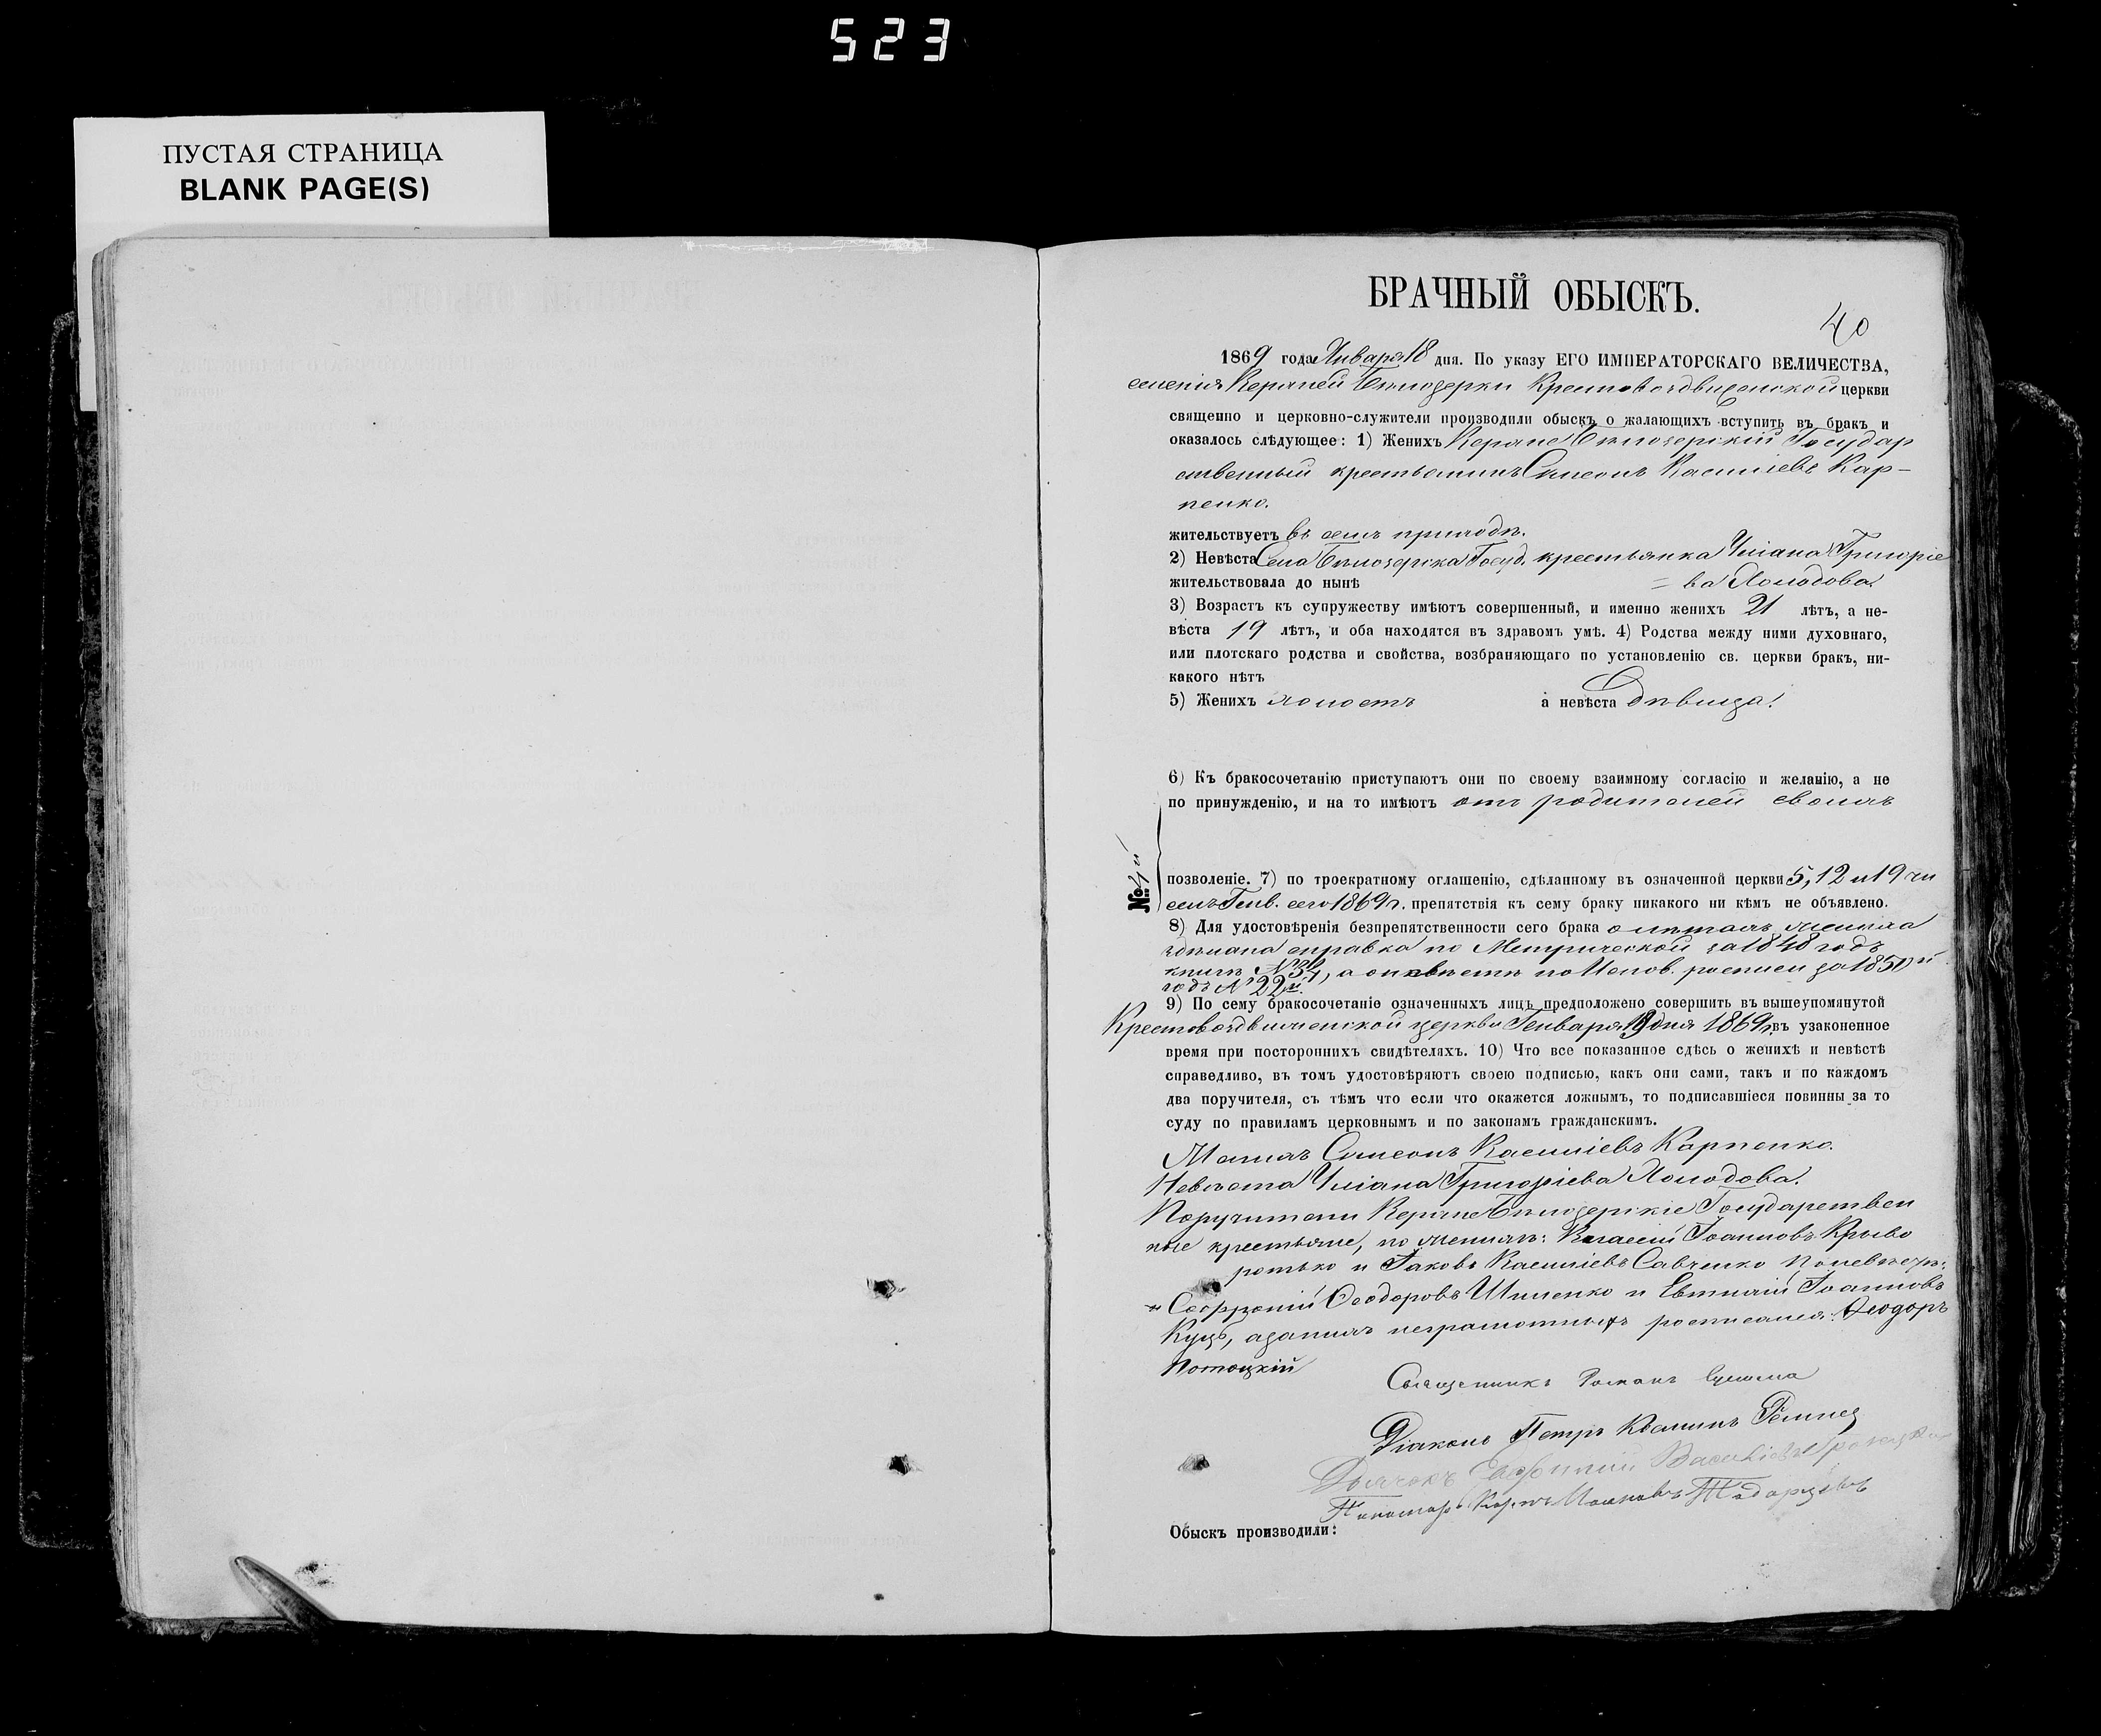 523
ПУСТАЯ СТРАНИЦА
BLANK PAGE(S)
БРАЧНЫЙ ОБЫСКЪ.
40
1869 года Января 18 дня. По указу ЕГО ИМПЕРАТОРСКАГО ВЕЛИЧЕСТВА,
селенія Керлне[й] Бѣлозерки Крестовоздвиженской церкви
священно и церковно-служители производили обыскъ о жалающихъ вступить въ бракъ и
оказалось слѣдующее: 1) Женихъ Бѣлозерскій Государ
ственный крестьянинъ Симеонъ Касиміевъ Кар-
пенко.
жительствуетъ въ семъ приходѣ.
2) Невѣста Села Бѣлозерка Госуд. крестьянка Уліана Григоріе
жительствовала до нынѣ = ва Холодова.
3) Возрастъ къ супружеству имѣютъ совершенный, и именно женихъ 21 лѣтъ, а не-
вѣста 19 лѣтъ, и оба находятся въ здравомъ умѣ. 4) Родства между ними духовнаго,
или плотскаго родства и свойства, возбраняющаго по установленію св. церкви бракъ, ни-
какого нѣтъ
5) Женихъ холостъ а невѣста дѣвица!
6) Къ бракосочетанію приступаютъ они по своему взаимному согласію и желанію, а не
по принужденію, и на то имѣютъ отъ родителей своихъ
№: 4й
позволеніе. 7) по троекратному оглашенію, сдѣланному въ означенной церкви 5, 12 и 19 чи
селъ Генв. сего 1869 г. препятствія къ сему браку никакого ни кѣмъ не объявлено.
8) Для удостовѣренія безпрепятственности сего брака о лѣтахъ жениха
здѣлана справка по Метрической за 1848 годъ
книгѣ № 34, а о невѣстѣ по Испов. росписи за 1850й
годъ № 22й.
9) По сему бракосочетаніе означенныхъ лицъ предположено совершить въ вышеупомянутой
Крестовоздвиженской церкви Генваря 19 дня 1869 г. въ узаконенное
время при постороннихъ свидѣтеляхъ. 10) Что все показанное сдѣсь о женихѣ и невѣстѣ
справедливо, въ томъ удостовѣряютъ своею подписью, какъ они сами, такъ и по каждомъ
два поручителя, съ тѣмъ что если что окажется ложнымъ, то подписавшіеся повинны за то
суду по правиламъ церковнымъ и по законамъ гражданскимъ.
Женихъ Симеонъ Касиміевъ Карпенко.
Невѣста Уліана Григоріева Холодова.
Поручители Бѣлозерскіе Государствен
ные крестьяне, по женихѣ: Власій Іоанновъ Криво
ротько и Іаковъ Савченко по невѣстѣ:
Софроній Ѳеодоровъ Шиленко и Евтихій Іоанновъ
Куцъ, а за нихъ неграмотныхъ росписался: Ѳеодоръ
Потоцкій
Священникъ Романъ
Діаконъ Петръ
Дьячекъ
Пономарь
Обыскъ производили: